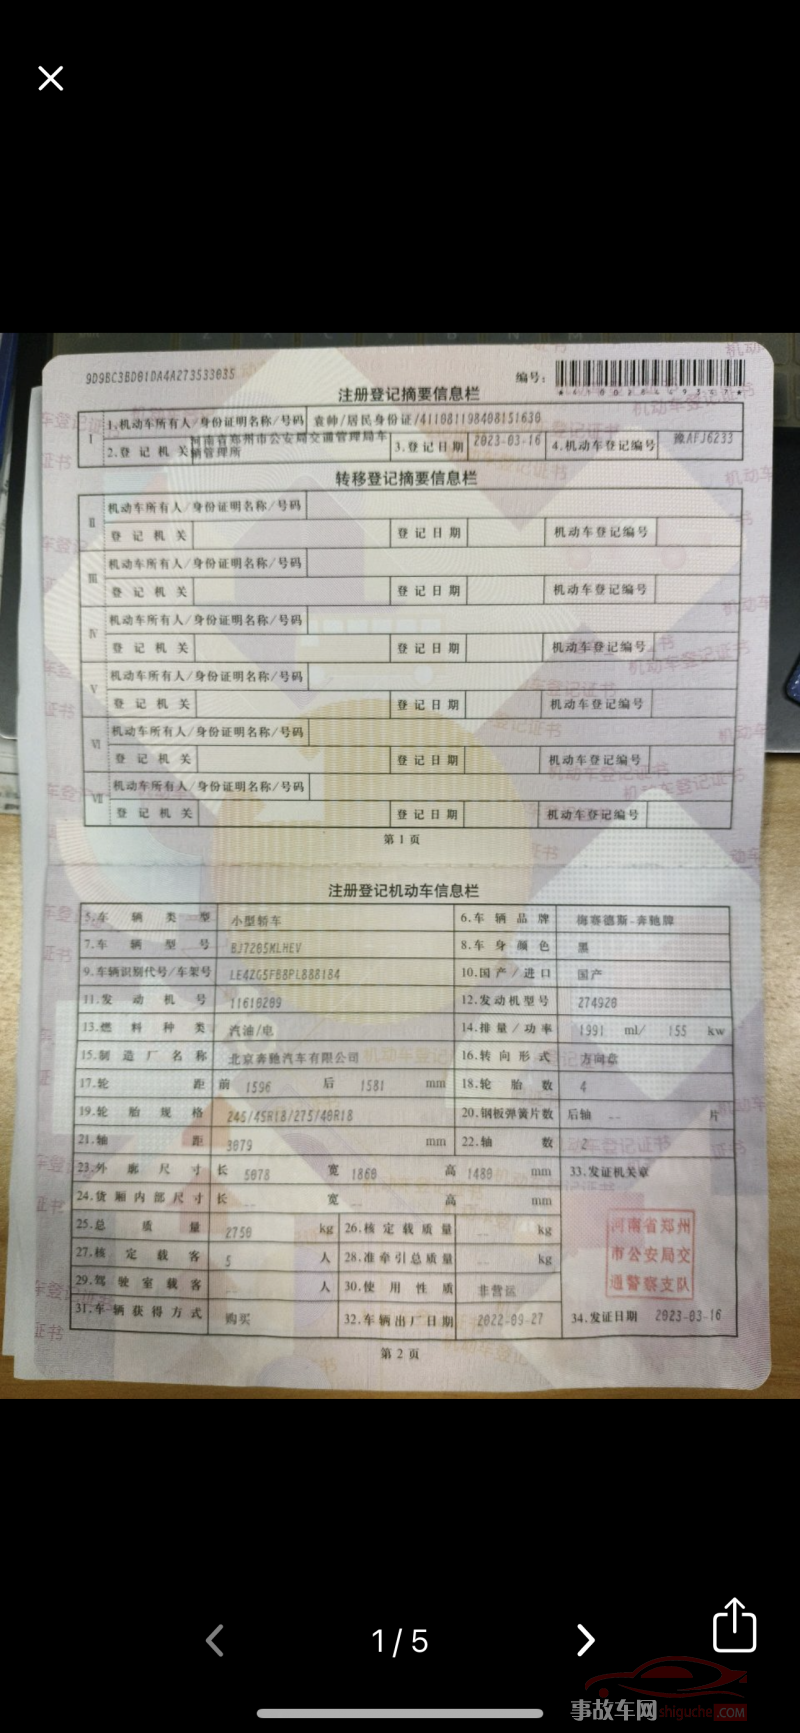 9D9BC3BD01DA4A273533035
编号：
注册登记摘要信息栏
I 1.机动车所有人/身份证明名称/号码 袁帅/居民身份证/411081198408151630
2.登记机关 河南省郑州市公安局交通管理局车辆管理所 3.登记日期 2023-03-16 4.机动车登记编号 豫AFJ6233
转移登记摘要信息栏
II 机动车所有人/身份证明名称/号码
登记机关 登记日期 机动车登记编号
III 机动车所有人/身份证明名称/号码
登记机关 登记日期 机动车登记编号
IV 机动车所有人/身份证明名称/号码
登记机关 登记日期 机动车登记编号
V 机动车所有人/身份证明名称/号码
登记机关 登记日期 机动车登记编号
VI 机动车所有人/身份证明名称/号码
登记机关 登记日期 机动车登记编号
VII 机动车所有人/身份证明名称/号码
登记机关 登记日期 机动车登记编号
第1页
注册登记机动车信息栏
5.车辆类型 小型轿车 6.车辆品牌 梅赛德斯-奔驰牌
7.车辆型号 BJ7205MLHEV 8.车身颜色 黑
9.车辆识别代号/车架号 LE4ZG5FB8PL888184 10.国产/进口 国产
11.发动机号 11610209 12.发动机型号 274920
13.燃料种类 汽油/电 14.排量/功率 1991 ml/ 155 kw
15.制造厂名称 北京奔驰汽车有限公司 16.转向形式 方向盘
17.轮距 前 1596 后 1581 mm 18.轮胎数 4
19.轮胎规格 245/45R18/275/40R18 20.钢板弹簧片数 后轴 -- 片
21.轴距 3079 mm 22.轴数 2
23.外廓尺寸 长 5078 宽 1860 高 1480 mm 33.发证机关章
24.货厢内部尺寸 长 -- 宽 -- 高 -- mm
25.总质量 2750 kg 26.核定载质量 -- kg
河南省郑州
市公安局交
通警察支队
27.核定载客 5 人 28.准牵引总质量 -- kg
29.驾驶室载客 -- 人 30.使用性质 非营运
31.车辆获得方式 购买 32.车辆出厂日期 2022-09-27 34.发证日期 2023-03-16
第2页
1/5
事故车网 shiguche.COM